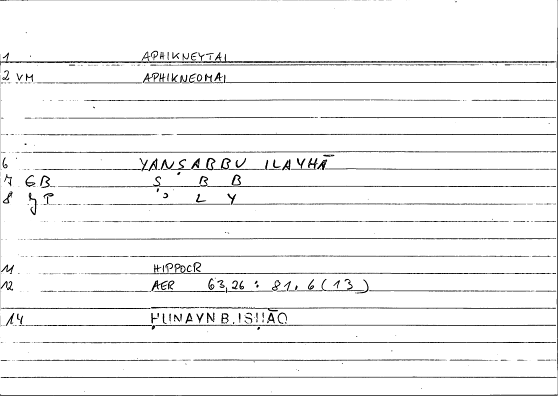 1 APHIKNEYTAI
2 VM APHIKNEOMAI
6 YANṢABBU ILAYHĀ
7 GB Ṣ B B
8 JP ʾ L Y
11 HIPPOCR
12 AER 63,26 : 81,6 (13)
14 ḤUNAYN B. ISḤĀQ